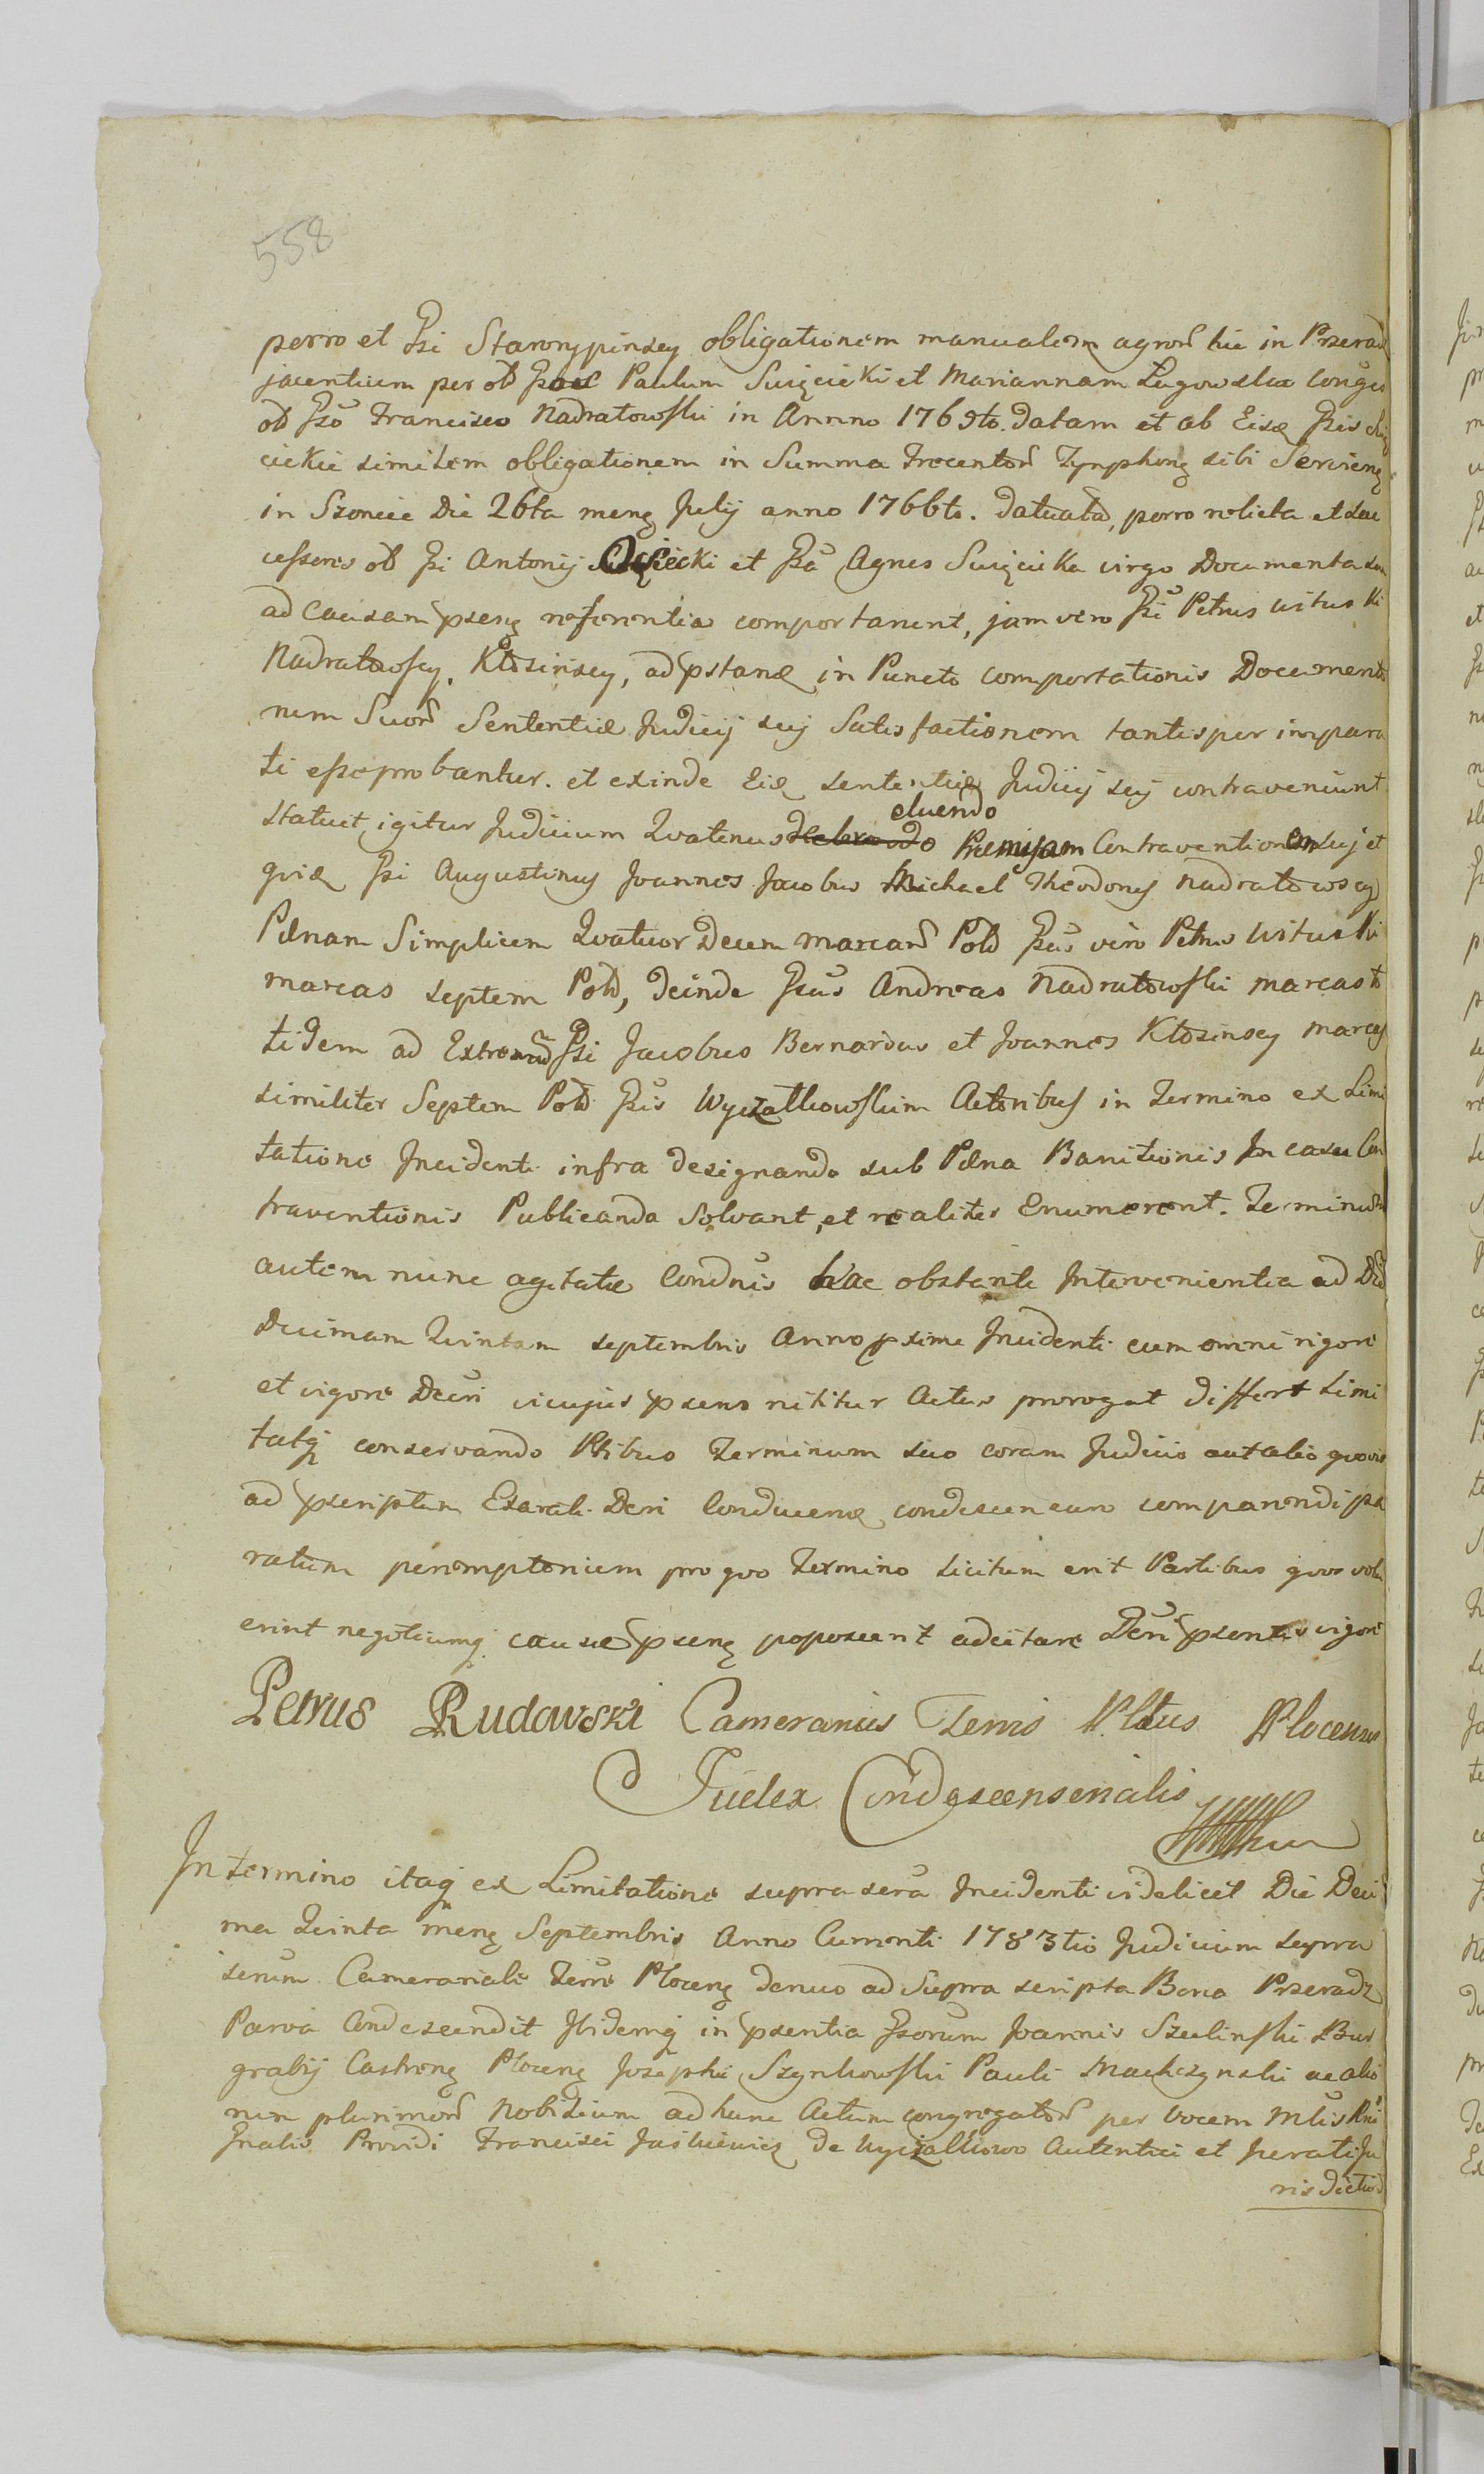 558
porro et Gsi Starorypinscy obligationem manualem agrorũ hic in Przerad
jacentium per olt Gsos Paulum Swięcicki et Mariannam Ługowska conjuges
olt Gso Francisco Nadratowski in Annno 1769to. datam et ab Eisdẽ Gsis Swię
cickie similem obligationem in Summa Trecentorũ Tynphonę sibi Servienę
in Szoncie Die 26ta menę Julij anno 1766to. datuatã, porro relicta et suc
cessores olt Gsi Antonij Święcicki et Gsa Agnes Swięcicka virgo Documenta sua
ad causam psenę referentia comportarunt, jam vero Gsi Petrus Witus Ki
Nadratowscy, Kłosinscy, ad pstandẽ in Puncto comportationis Documento
rum Suorũ Sententiæ Judicij sui Satisfactionem tantisper impara
ti esse probantur. et exinde Eidẽ sententiæ Judicij sui contraveniunt
statuit igitur Judicium Quatenus eluendo Præmissam Contraventionem suj et
quidẽ Gsi Augustinus Joannes Jacobus Michael Theodorus Nadratowscy
Pænam Simplicem Quatuor Decem marcarũ Polt Gsus vero Petrus Witus Ki
marcas septem Polt, deinde Gsus Andreas Nadratowski marcas to
tidem ad Extremũ Gsi Jacobus Bernardus et Joannes Kłosinscy marcas
similiter Septem Polt Gsis Wyczałkowskim Actoribus in Termino ex Limi
tatione Incidenti infra designando sub Pæna Banitionis In casu Con
traventionis Publicanda Solvant, et realiter Enumerent. Terminum
autem nunc agitatæ Condnis hac obstante Intervenientia ad Diẽ
Decimam Quintam septembris Anno psime Incidenti cum omni rigore
et vigore Decri cujus psens nititur Actus prorogat differt Limi
tatq conservando Ptibus Terminum suo coram Judicio aut alio quovis
ad pscriptum Exarati Decri Conducendẽ condescensuro comparendi pa
ratum peremptorium pro quo Termino licitum erit Partibus quos volu
erint negotiumq causæ psenę poposcerit adcitare Decri psentis vigore
Petrus Rudowski Camerarius Terris Pltus Plocensis
Judex Condescensorialis
In termino itaq ex Limitatione suprasera Incidenti videlicet Die Deci
ma Quinta menę Septembris Anno Currenti 1783tio Judicium supra
serum Camerariale Terre Plocenę denuo ad Supra scripta Bona Przeradz
Parva Condescendit Ibidemq in psentia Gsorum Joannis Szulinski Bur
grabij Castrenę Plocenę Josephi Szynkowski Pauli Machczynski ac alio
rum plurimorũ Nobilium ad hunc Actum congregatorũ per vocem Mtlis Rni
Gnalis Providi Francisci Jaśkiewicz de Wyczałkowo Autentici et Jurati Ju
risdictio